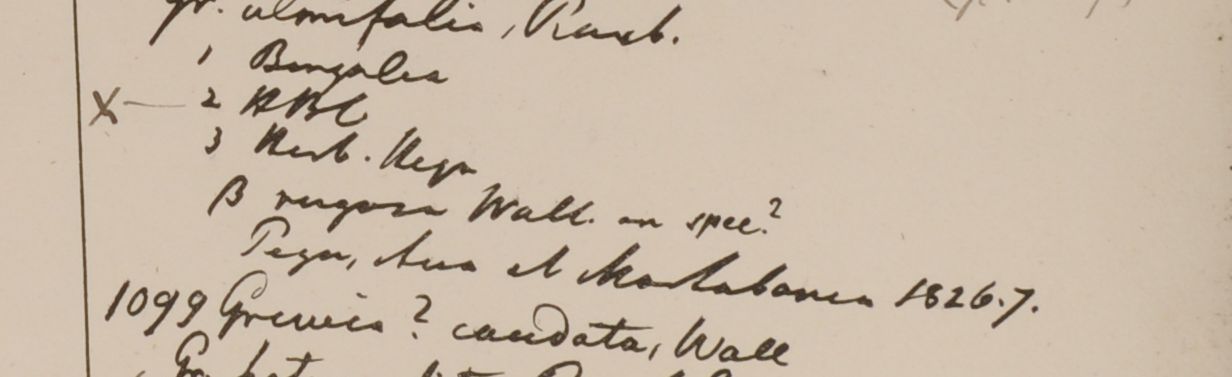 Gr. ulmifolia, Roxb.
1 Bengalea
X — 2 HBC
3 Herb. Heyn
β rugosa Wall. an spec?
Pegu, Ava et Martabania 1826.7.
1099 Grewia? caudata, Wall
Gr.